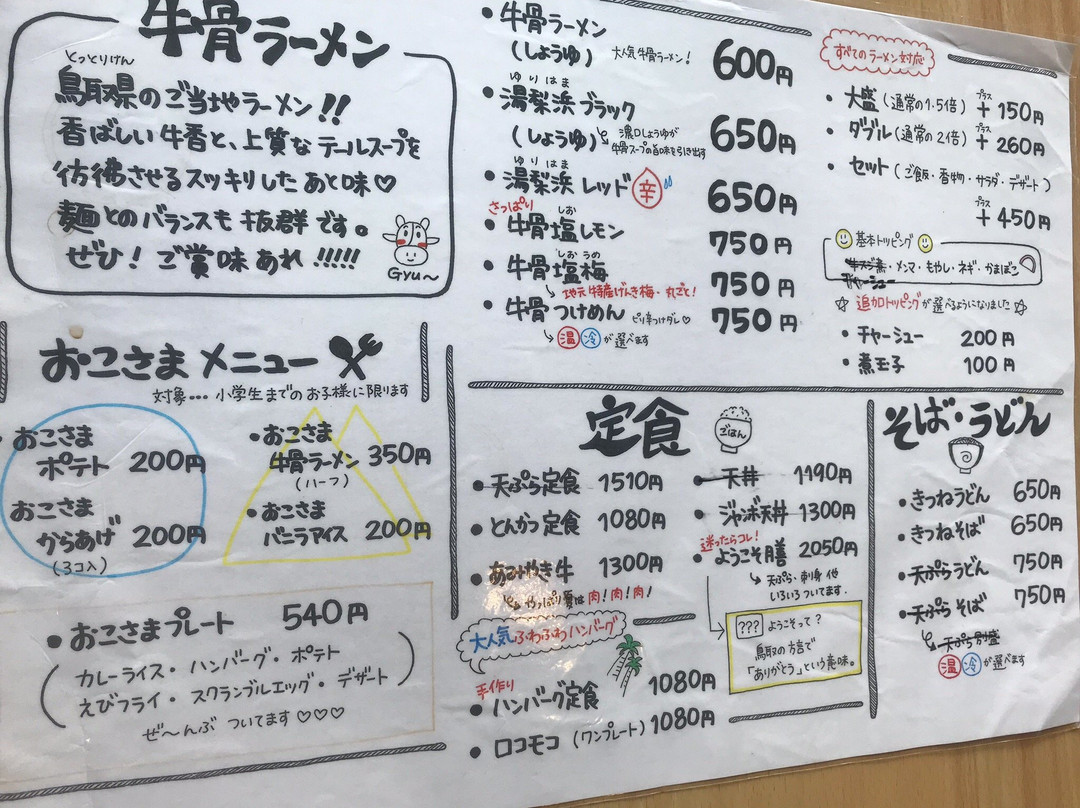 牛骨ラーメン
とっとりけん
鳥取県のご当地ラーメン!!
香ばしい牛香と、上質なテールスープを
彷彿させるスッキリしたあと味♡
麺とのバランスも抜群です。
ぜひ!ご賞味あれ!!!!!
Gyu〜
・牛骨ラーメン
(しょうゆ) 大人気牛骨ラーメン! 600円
ゆりはま
・湯梨浜ブラック
(しょうゆ) 濃口しょうゆが 650円
牛骨スープの旨味を引き出す
ゆりはま
・湯梨浜レッド 辛 650円
さっぱり
しお
・牛骨塩レモン 750円
しおうめ
・牛骨塩梅 750円
地元特産げんき梅・丸ごと!
・牛骨つけめん ピリ辛つけダレ♡ 750円
温 冷 が選べます
すべてのラーメン対応
・大盛(通常の1.5倍) プラス +150円
・ダブル(通常の2倍) プラス +260円
・セット(ご飯・香物・サラダ・デザート)
プラス +450円
基本トッピング
牛スジ煮・メンマ・もやし・ネギ・かまぼこ
チャーシュー
☆追加トッピングが選べるようになりました☆
・チャーシュー 200円
・煮玉子 100円
おこさまメニュー
対象…小学生までのお子様に限ります
・おこさま
ポテト 200円
おこさま
からあげ 200円
(3コ入)
・おこさま
牛骨ラーメン 350円
(ハーフ)
・おこさま
バニラアイス 200円
・おこさまプレート 540円
(カレーライス・ハンバーグ・ポテト
えびフライ・スクランブルエッグ・デザート)
ぜ〜んぶついてます♡♡♡
定食
ごはん
・天ぷら定食 1510円
・とんかつ定食 1080円
・あみやき牛 1300円
やっぱり夏は肉!肉!肉!
・天丼 1190円
・ジャンボ天丼 1300円
迷ったらコレ!
・ようこそ膳 2050円
天ぷら・刺身 他
いろいろついてます.
??? ようこそって?
鳥取の方言で
「ありがとう」という意味。
大人気ふわふわハンバーグ
手作り
・ハンバーグ定食 1080円
・ロコモコ(ワンプレート) 1080円
そば・うどん
・きつねうどん 650円
・きつねそば 650円
・天ぷらうどん 750円
・天ぷらそば 750円
天ぷら別盛
温 冷 が選べます